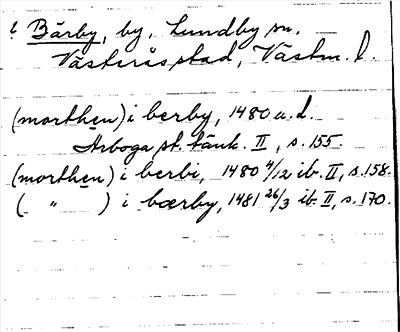 Bärby, by, Lundby sn.
Västerås stad, Västm. l.
(morthen) i berby, 1480 u.d.
Arboga st. tänk. II, s. 155.
(morthen) i berbi, 1480 4/12 ib. II, s. 158.
( " ) i bærby, 1481 26/3 ib. II, s. 170.